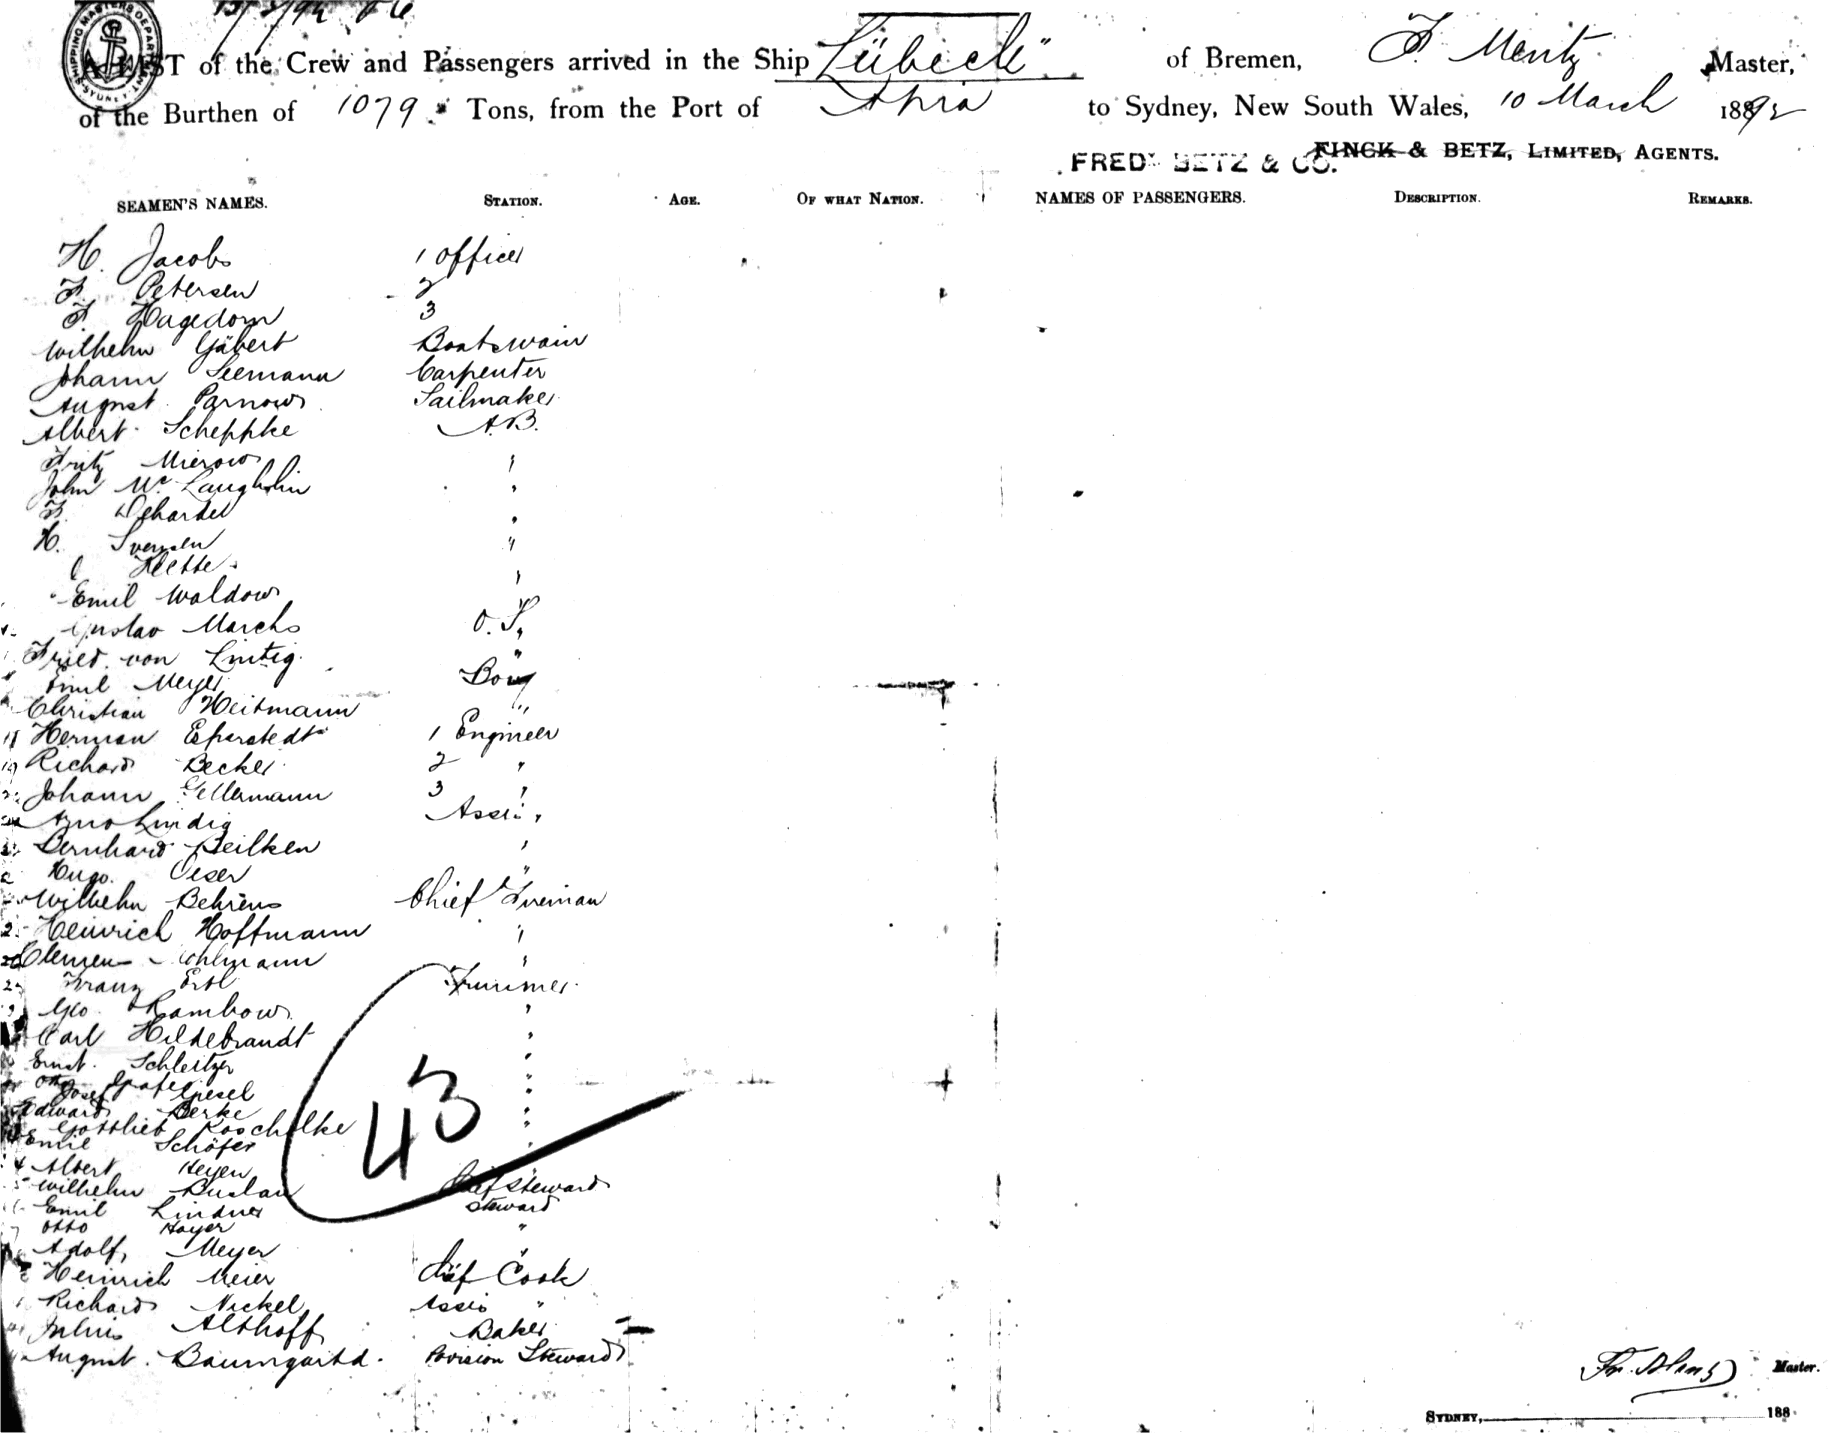 SHIPPING MASTERS DEPARTMENT SYDNEY
A LIST of the Crew and Passengers arrived in the Ship "Lübeck" of Bremen, F. Mentz Master,
of the Burthen of 1079 Tons, from the Port of Apia to Sydney, New South Wales, 10 March 1892
FREDK BETZ & CO. FINCK & BETZ, LIMITED, AGENTS.
SEAMEN'S NAMES. STATION. AGE. OF WHAT NATION. NAMES OF PASSENGERS. DESCRIPTION. REMARKS.
H. Jacobs 1 Officer
F. Petersen 2
F. Hagedorn 3
Wilhelm Gäbert Boatswain
Johann Seemann Carpenter
August Parnow Sailmaker
Albert Scheppke A.B.
Fritz Mierow "
John Mc Laughlin "
F. "
H. Svensen "
Klette "
Emil Waldow "
Gustav Marchs O.S.
Fried. von Lintig "
Emil Meyer Boy
Christian Heitmann "
Herman 1 Engineer
Richard Becker 2 "
Johann Gellermann 3 "
Arno Lindig Assis "
Bernhard Beilken "
Hugo Oeser "
Wilhelm Behrens Chief Fireman
Heinrich Hoffmann "
Clemens "
Franz Ertl Trimmer
Geo. Rambow "
Carl Hildebrandt "
Ernst Schleitzer "
Otto "
Josef Giesel "
Edward Berke "
Gottlieb Koschelke "
Emil Schöfer "
Albert Heyen "
Wilhelm Buslau Chief Steward
Emil Lindner Steward
Otto Hoyer "
Adolf Meyer "
Heinrich Meier Chief Cook
Richard Nickel Assis "
Julius Althoff Baker
August Baumgartd. Provision Steward
43
Fr. Mentz Master.
SYDNEY, 188